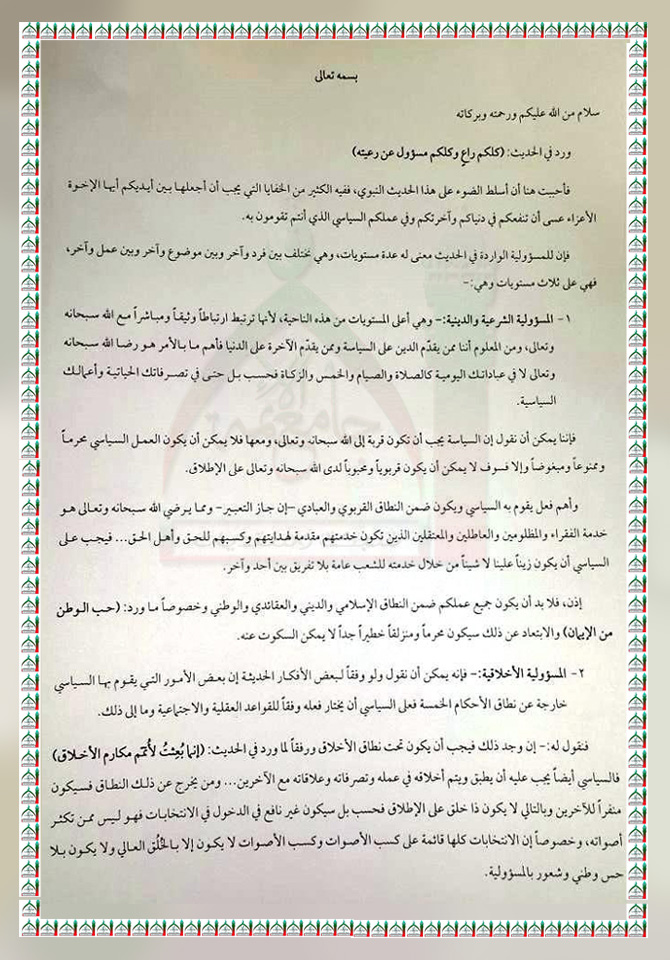 بسمه تعالى
سلام من الله عليكم ورحمته وبركاته
ورد في الحديث: (كلكم راعٍ وكلكم مسؤول عن رعيته)
فأحببت هنا أن أسلط الضوء على هذا الحديث النبوي، ففيه الكثير من الخفايا التي يجب أن أجعلها بين أيديكم أيها الإخوة
الأعزاء عسى أن تنفعكم في دنياكم وآخرتكم وفي عملكم السياسي الذي أنتم تقومون به.
فإن للمسؤولية الواردة في الحديث معنى له عدة مستويات، وهي تختلف بين فرد وآخر وبين موضوع وآخر وبين عمل وآخر،
فهي على ثلاث مستويات وهي:-
١- المسؤولية الشرعية والدينية:- وهي أعلى المستويات من هذه الناحية، لأنها ترتبط ارتباطاً وثيقاً ومباشراً مع الله سبحانه
وتعالى، ومن المعلوم أننا ممن يقدّم الدين على السياسة وممن يقدّم الآخرة على الدنيا فأهم ما بالأمر هو رضا الله سبحانه
وتعالى لا في عباداتك اليومية كالصلاة والصيام والخمس والزكاة فحسب بل حتى في تصرفاتك الحياتية وأعمالك
السياسية.
فإننا يمكن أن نقول إن السياسة يجب أن تكون قربة إلى الله سبحانه وتعالى، ومعها فلا يمكن أن يكون العمل السياسي محرماً
وممنوعاً ومبغوضاً وإلا فسوف لا يمكن أن يكون قربوياً ومحبوباً لدى الله سبحانه وتعالى على الإطلاق.
وأهم فعل يقوم به السياسي ويكون ضمن النطاق القربوي والعبادي –إن جاز التعبير- ومما يرضي الله سبحانه وتعالى هو
خدمة الفقراء والمظلومين والعاطلين والمعتقلين الذين تكون خدمتهم مقدمة لهدايتهم وكسبهم للحق وأهل الحق... فيجب على
السياسي أن يكون زيناً علينا لا شيناً من خلال خدمته للشعب عامة بلا تفريق بين أحد وآخر.
إذن، فلا بد أن يكون جميع عملكم ضمن النطاق الإسلامي والديني والعقائدي والوطني وخصوصاً ما ورد: (حب الوطن
من الإيمان) والابتعاد عن ذلك سيكون محرماً ومنزلقاً خطيراً جداً لا يمكن السكوت عنه.
٢- المسؤولية الأخلاقية:- فإنه يمكن أن نقول ولو وفقاً لبعض الأفكار الحديثة إن بعض الأمور التي يقوم بها السياسي
خارجة عن نطاق الأحكام الخمسة فعلى السياسي أن يختار فعله وفقاً للقواعد العقلية والاجتماعية وما إلى ذلك.
فنقول له:- إن وجد ذلك فيجب أن يكون تحت نطاق الأخلاق ورفقاً لما ورد في الحديث: (إنما بُعِثتُ لأُتمّم مكارم الأخلاق)
فالسياسي أيضاً يجب عليه أن يطبق ويتم أخلاقه في عمله وتصرفاته وعلاقاته مع الآخرين... ومن يخرج عن ذلك النطاق فسيكون
منفراً للآخرين وبالتالي لا يكون ذا خلق على الإطلاق فحسب بل سيكون غير نافع في الدخول في الانتخابات فهو ليس ممن تكثر
أصواته، وخصوصاً إن الانتخابات كلها قائمة على كسب الأصوات وكسب الأصوات لا يكون إلا بالخُلُق العالي ولا يكون بلا
حس وطني وشعور بالمسؤولية.